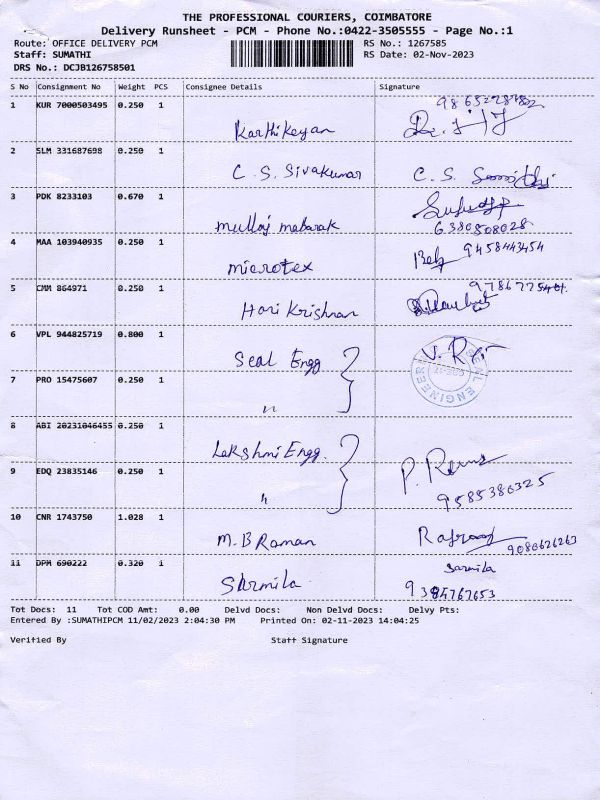 THE PROFESSIONAL COURIERS, COIMBATORE
Delivery Runsheet - PCM - Phone No.:0422-3505555 - Page No.:1
Route: OFFICE DELIVERY PCM
RS No.: 1267585
Staff: SUMATHI
RS Date: 02-Nov-2023
DRS No.: DCJB126758501
S No Consignment No Weight PCS Consignee Details Signature
1 KUR 7000503495 0.250 1 Karthikeyan
2 SLM 331687698 0.250 1 C. S. Sivakumar C. S.
3 PDK 8233103 0.670 1 mullaj mabarak
6380808028
4 MAA 103940935 0.250 1 microtex 9458443454
5 CMM 864971 0.250 1 Hari Krishnan
6 VPL 944825719 0.800 1 Seal Engg
7 PRO 15475607 0.250 1 "
8 ABI 20231046455 0.250 1 Lakshmi Engg.
9 EDQ 23835146 0.250 1 "
9585380325
10 CNR 1743750 1.028 1 M.B Raman
9080626263
11 DPM 690222 0.320 1 Sharmila sarmila
9384767653
Tot Docs: 11 Tot COD Amt: 0.00 Delvd Docs: Non Delvd Docs: Delvy Pts:
Entered By :SUMATHIPCM 11/02/2023 2:04:30 PM Printed On: 02-11-2023 14:04:25
Verified By Staff Signature